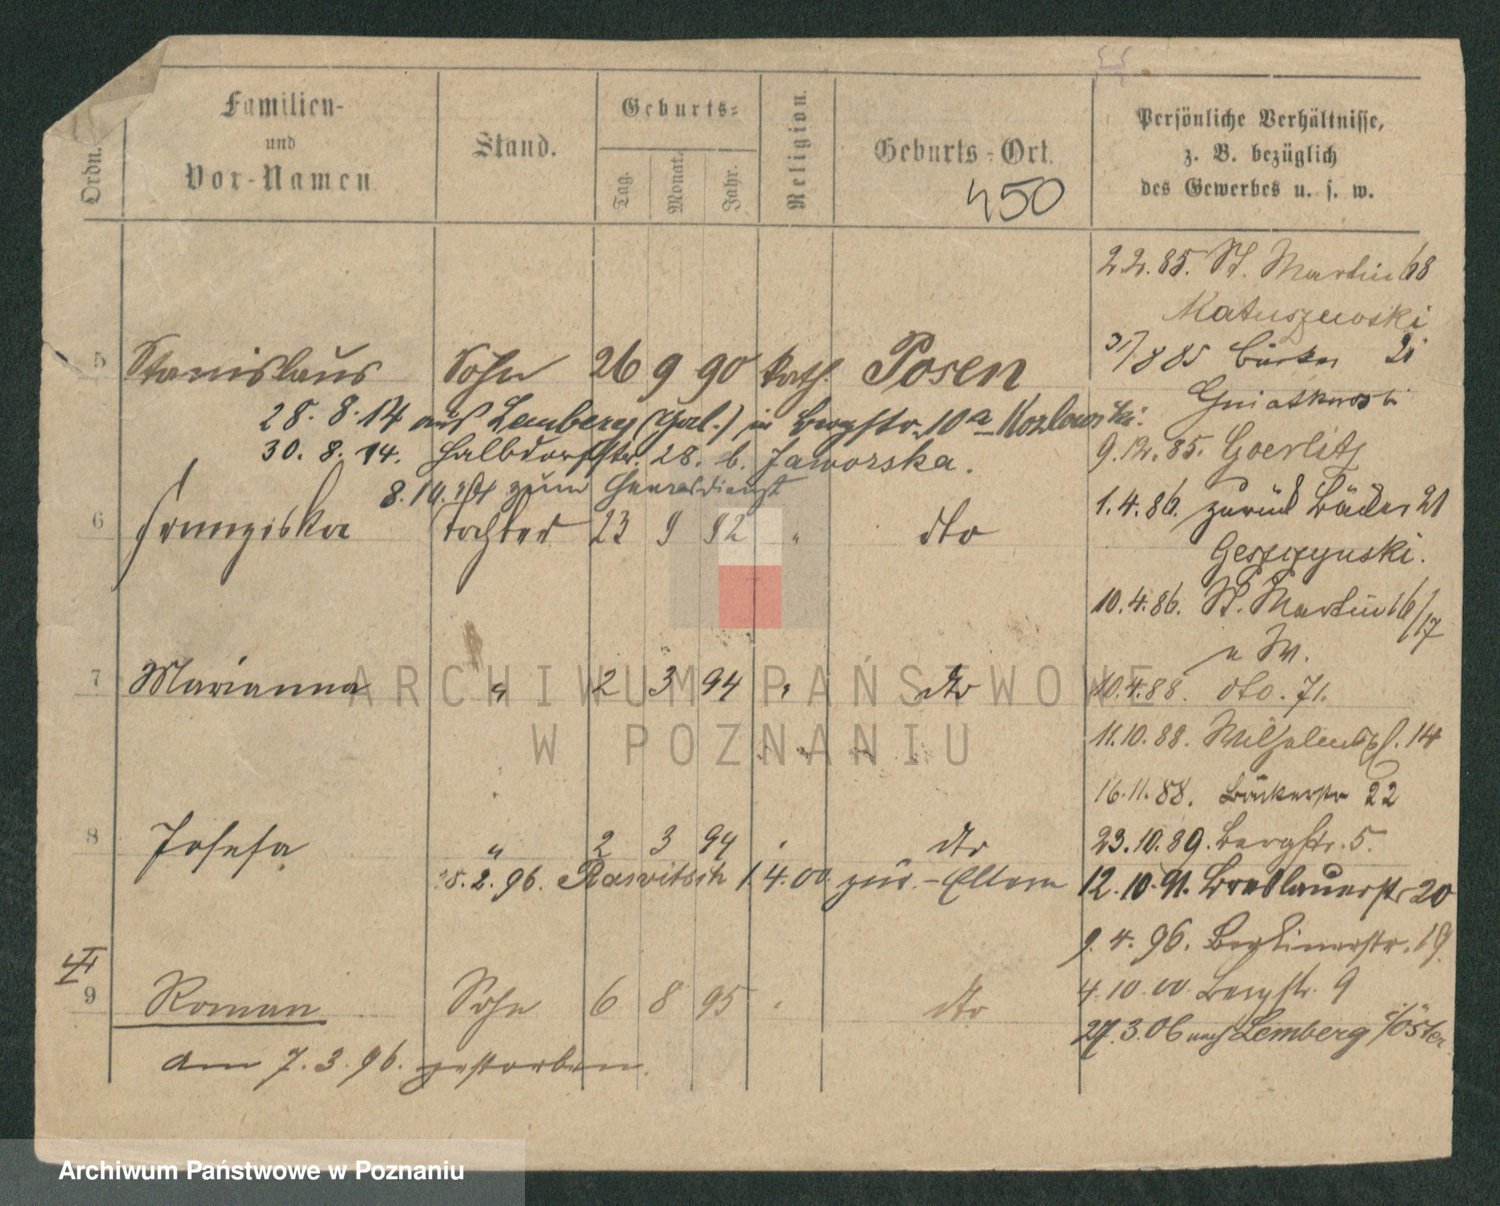 Ordn.
Familien-
und
Vor-Namen
Stand.
Geburts-
Tag.
Monat.
Jahr.
Religion.
Geburts-Ort.
450
Persönliche Verhältnisse,
z. B. bezüglich
des Gewerbes u. s. w.
2.2.85. St. Martin 68
Matuszewski
5 Stanislaus Sohn 26 9 90 kath. Posen
28. 8. 14 aus Lemberg (Gal.) in Bergstr. 10a Kozlowski.
30. 8. 14. Halbdorfstr. 28. b. Jaworska.
8.10. zum Heeresdienst
31/8 85 21
9.12.85. Goerlitz
1.4.86. zurück Bäcker 21
6 Franziska Tochter 23 9 92 " dto
10.4.86. St. Martin 16/17
7 Marianna " 2 3 94 " dto
10.4.88. dto. 71.
11.10.88. Wilhelmspl. 14
16.11.88. Bäckerstr 22
8 Josefa " 2 3 94 " dto
23.10.89. Bergstr. 5.
8.2.96. Rawitsch 1.4.00 zur. - Eltern
12.10.91. Breslauerstr 20
9.4.96. Berlinerstr. 19
9 Roman Sohn 6 8 95 " dto
4.10.00. Bergstr. 9
27.3.06 nach Lemberg i/Öster
am 7.3.96. gestorben.
ARCHIWUM PAŃSTWOWE
W POZNANIU
Archiwum Państwowe w Poznaniu